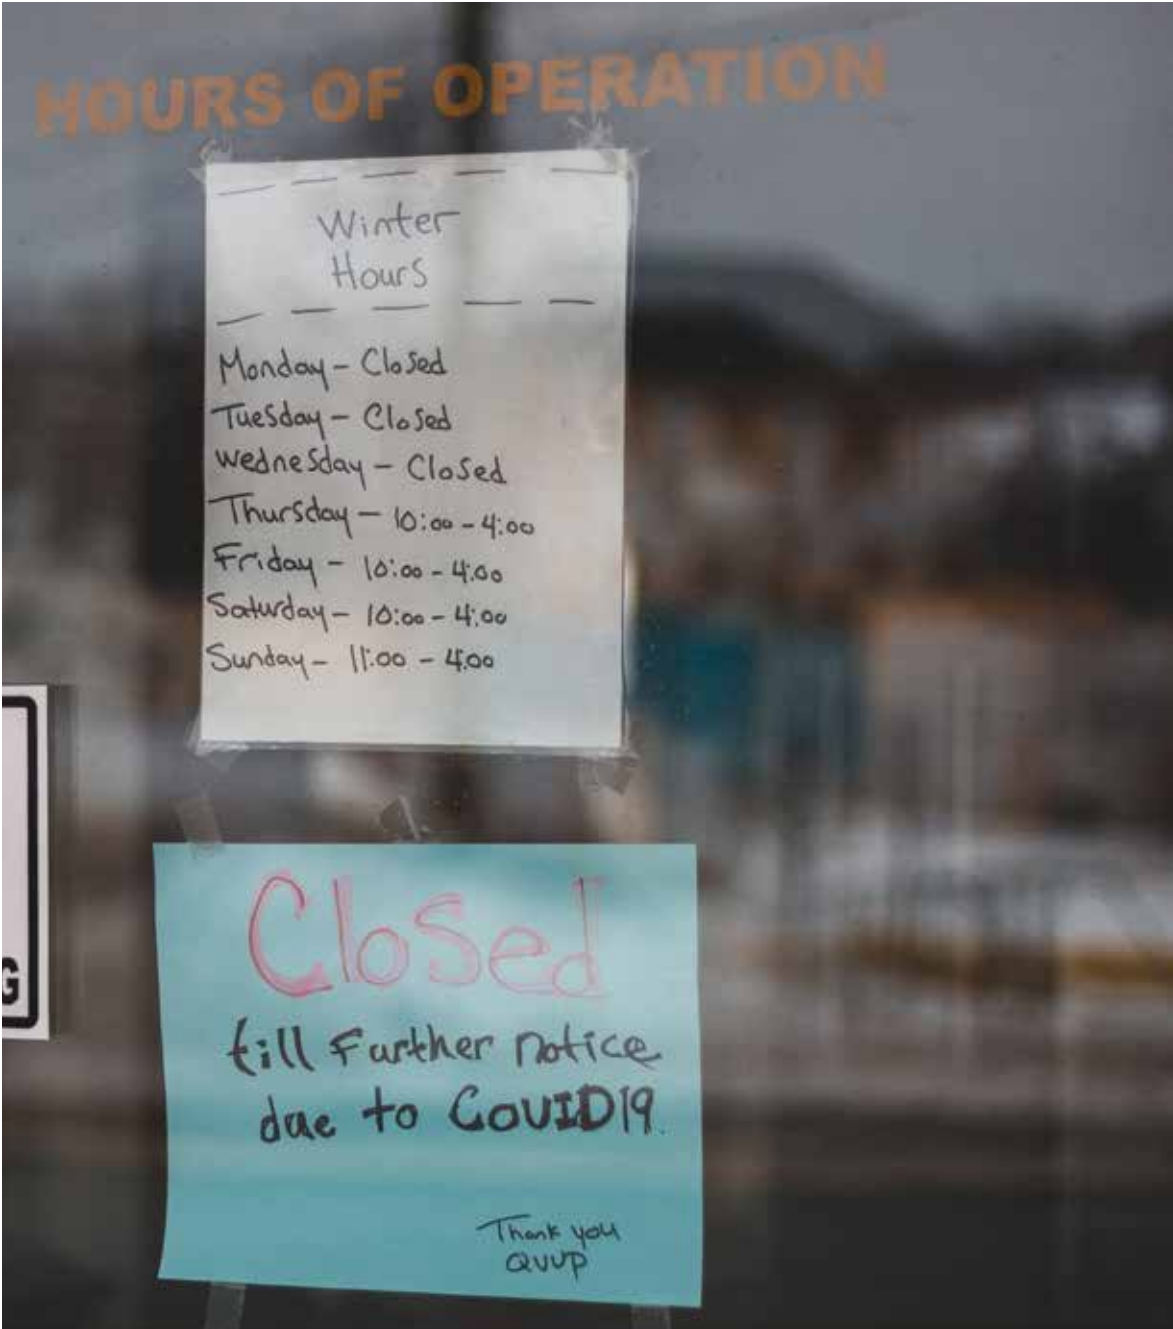 HOURS OF OPERATION
Winter
Hours
Monday - Closed
Tuesday - Closed
Wednesday - Closed
Thursday - 10:00 - 4:00
Friday - 10:00 - 4:00
Saturday - 10:00 - 4:00
Sunday - 11:00 - 4:00
G
Closed
till Further notice
due to COVID19.
Thank you
QVVP